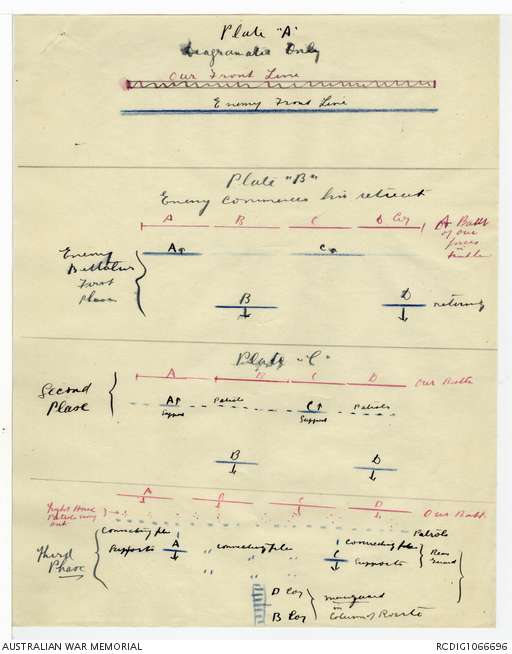 Plate "A"
Only
Our Front Line
Enemy Front Line
Plate "B"
Enemy commences his retreat
A B C D Coy
A Batt
of our
forces
in
Enemy
First
Phase
A C
B D retiring
Plate "C"
Second
Phase
A B C D Our Batt
A Patrols C Patrols
Support Support
B D
A B C D Our Batt
Light Horse
Patrols
out
Patrols
Third
Phase
Connecting file
Supports A " connecting file C connecting file
Supports
Rear
Guard
" "
" "
D Coy
B Coy
in
Column of Route
AUSTRALIAN WAR MEMORIAL
RCDIG1066696